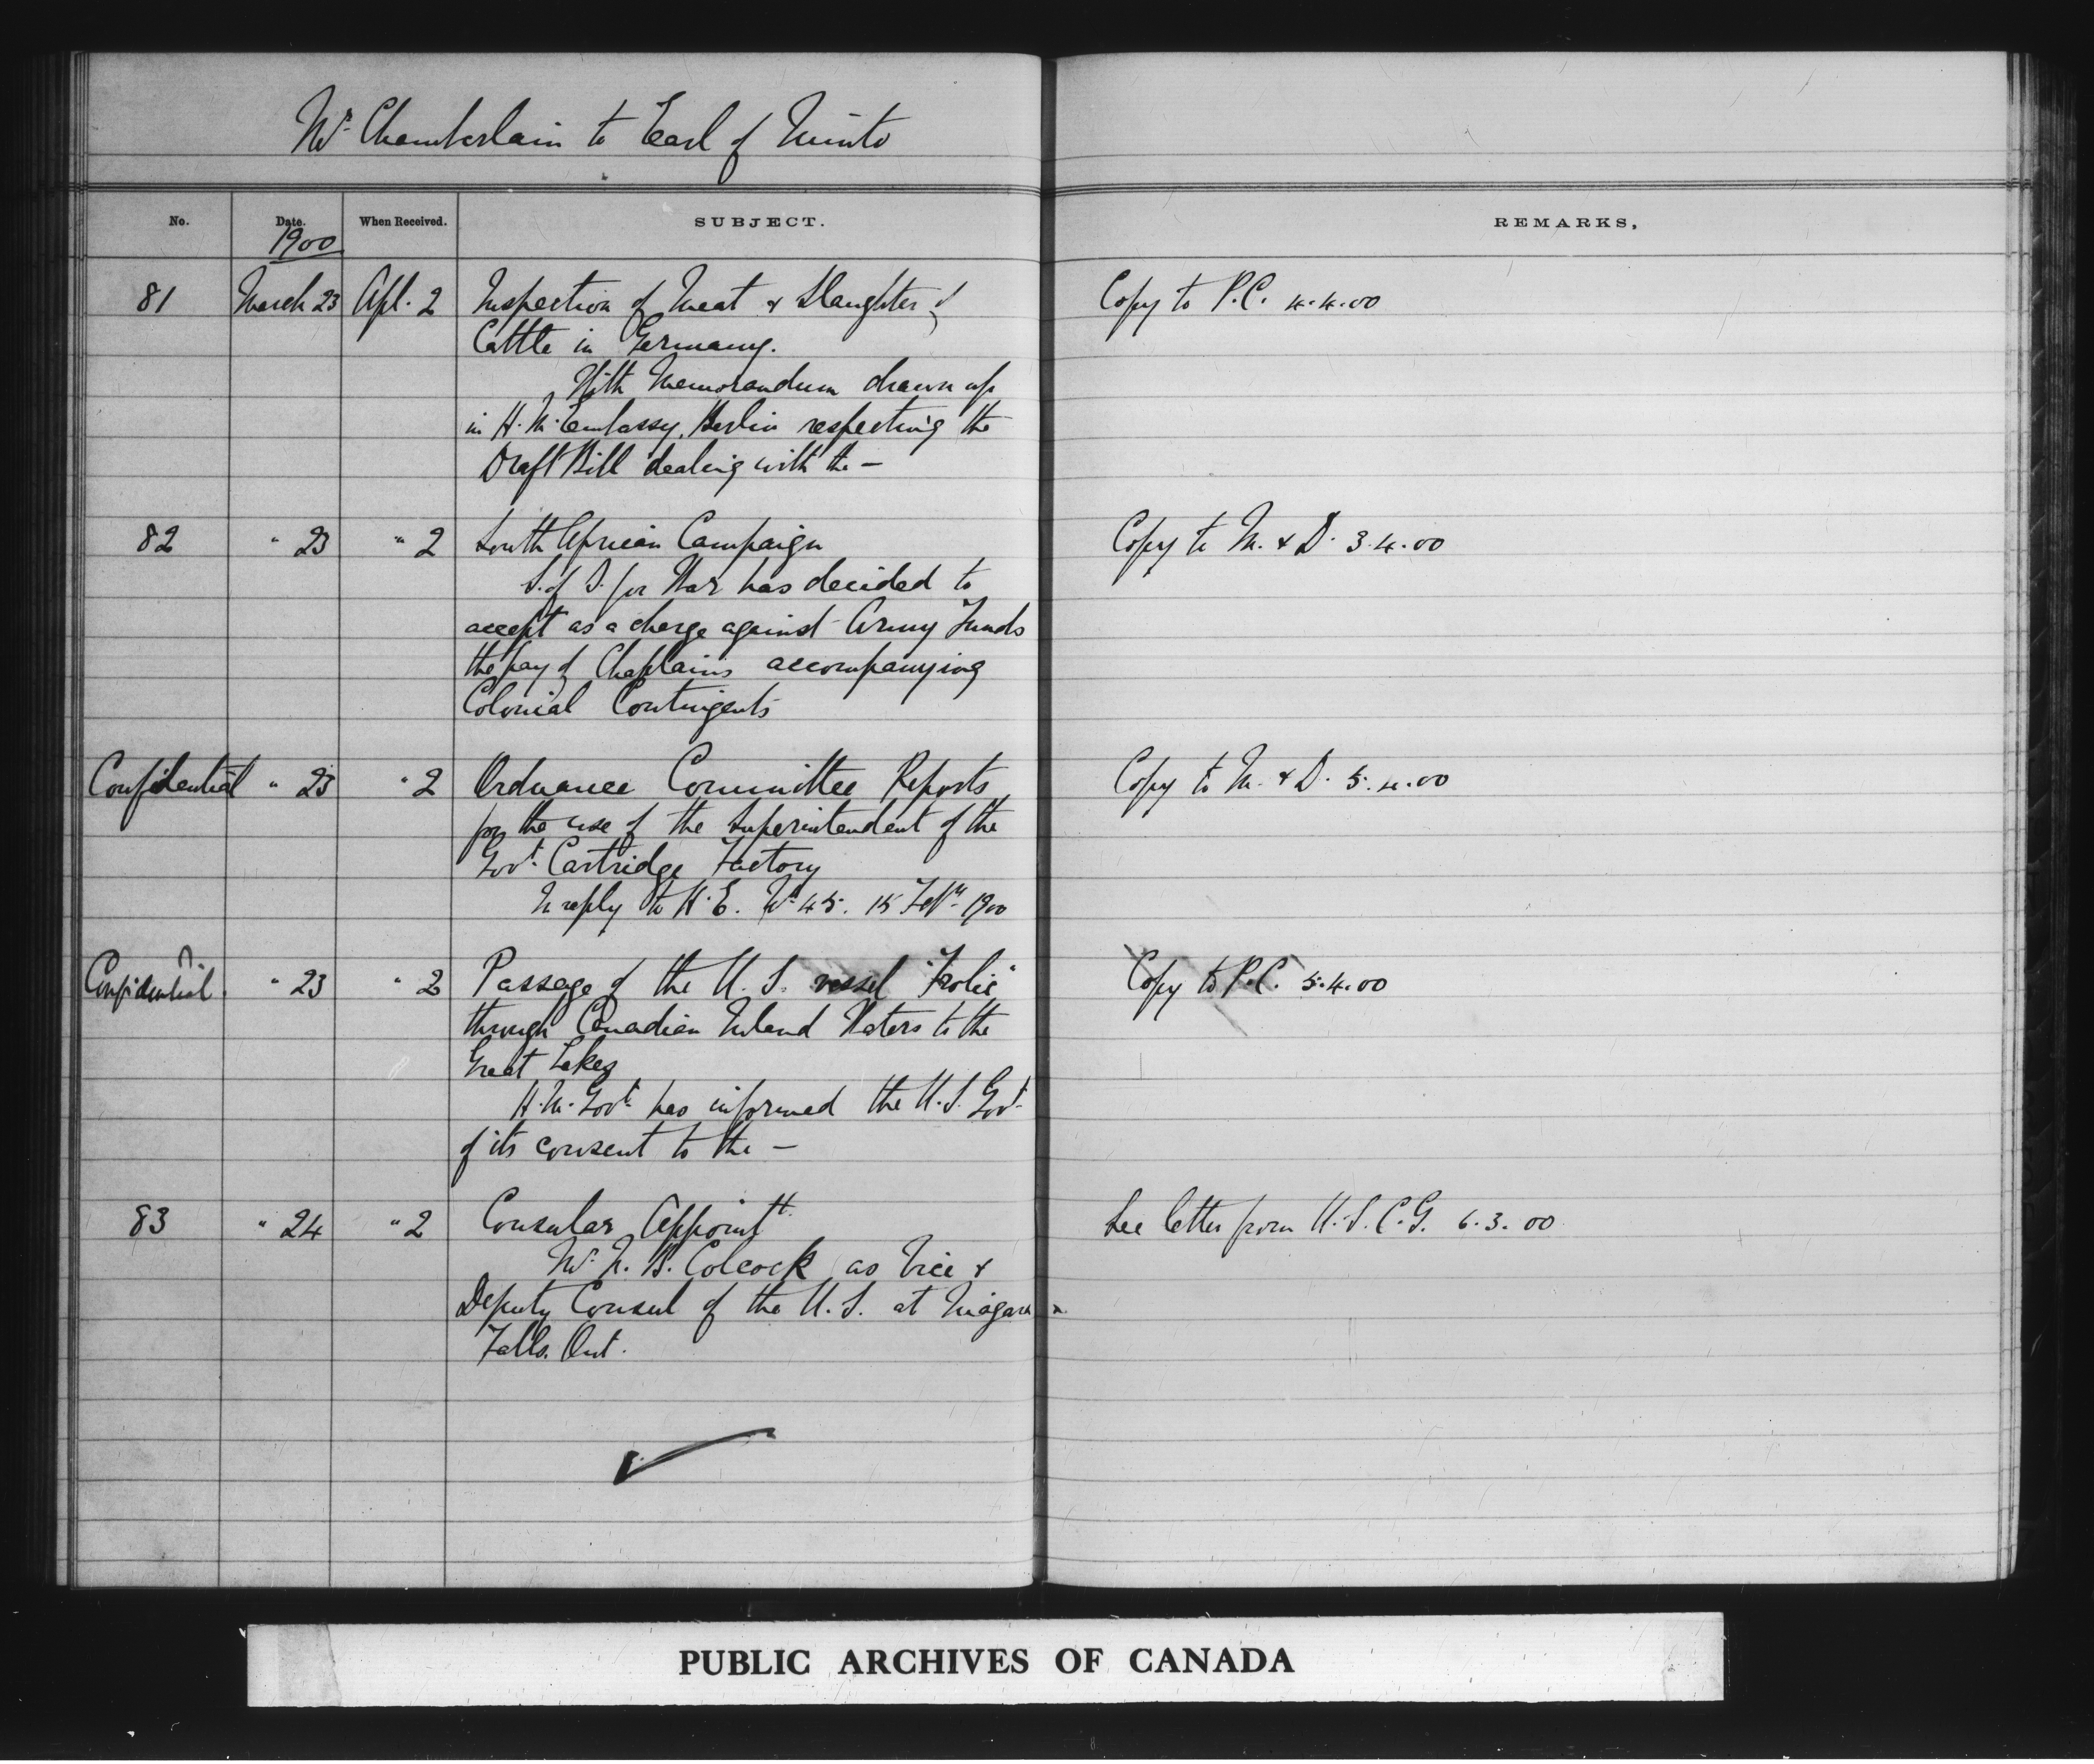 Mr. Chamberlain to Earl of Minto
No. Date. When Received. SUBJECT. REMARKS,
1900
81 March 23 Apl. 2 Inspection of Meat & Slaughter of Copy to P.C. 4.4.00
Cattle in Germany.
With Memorandum drawn up
in H.M. Embassy, Berlin respecting the
Draft Bill dealing with the —
82 " 23 " 2 South African Campaign Copy to M. & D. 3.4.00
S. of S. for War has decided to
accept as a charge against Army Funds
the pay of Chaplains accompanying
Colonial Contingents
Confidential " 23 " 2 Ordnance Committee Reports Copy to M. & D. 5.4.00
for the use of the Superintendent of the
Govt. Cartridge Factory
In reply to H.E. No. 45. 15 Feby. 1900
Confidential. " 23 " 2 Passage of the U.S. vessel "Frolic" Copy to P.C. 5.4.00
through Canadian Inland Waters to the
Great Lakes
H.M. Govt. has informed the U.S. Govt.
of its consent to the —
83 " 24 " 2 Consular Appointt. See letter from U.S.C.G. 6.3.00
Mr. N. B. Colcock as Vice &
Deputy Consul of the U.S. at Niagara
Falls. Ont.
PUBLIC ARCHIVES OF CANADA